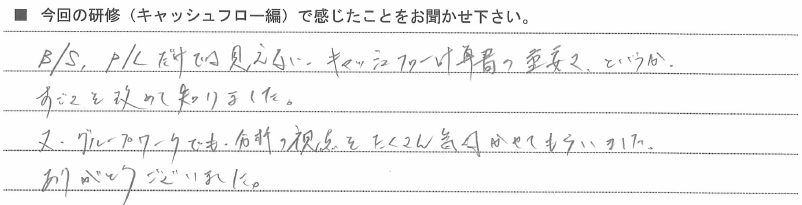 ■ 今回の研修（キャッシュフロー編）で感じたことをお聞かせ下さい。
B/S, P/Lだけでは見えない、キャッシュフロー計算書の重要さ、というか、
すごさを改めて知りました。
又、グループワークでも、分析の視点をたくさん気付かせてもらいました。
ありがとうございました。